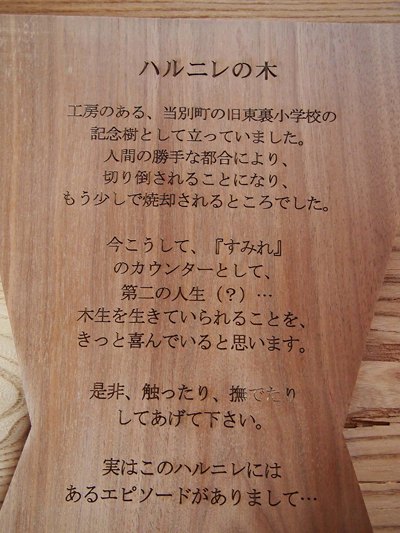 ハルニレの木
工房のある、当別町の旧東裏小学校の
記念樹として立っていました。
人間の勝手な都合により、
切り倒されることになり、
もう少しで焼却されるところでした。
今こうして、『すみれ』
のカウンターとして、
第二の人生(?)…
木生を生きていられることを、
きっと喜んでいると思います。
是非、触ったり、撫でたり
してあげて下さい。
実はこのハルニレには
あるエピソードがありまして…